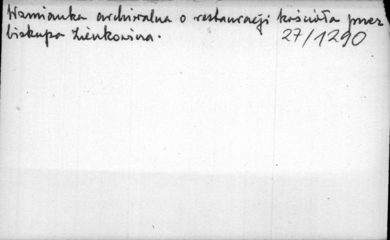 Wzmianka archiwalna o restauracji kościoła przez
biskupa Zienkowicza.
27/1290